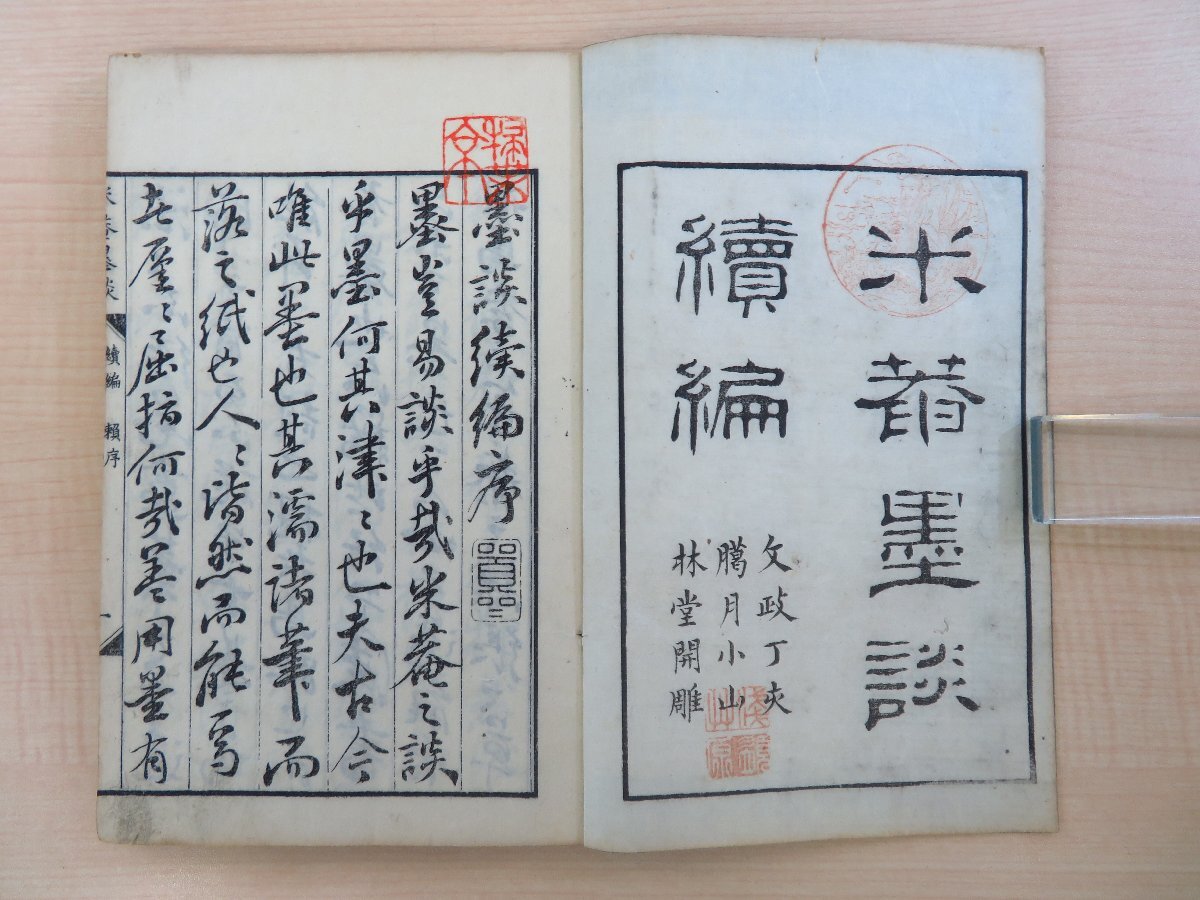 米菴墨談
續編
文政丁亥
臈月小山
林堂開雕
墨談續編序
墨豈易談乎哉米菴之談
乎墨何其津〻也夫古今
唯此墨也其濡諸筆而
落之紙也人〻皆然而能寫
屈指何哉善用墨有
續編 賴序